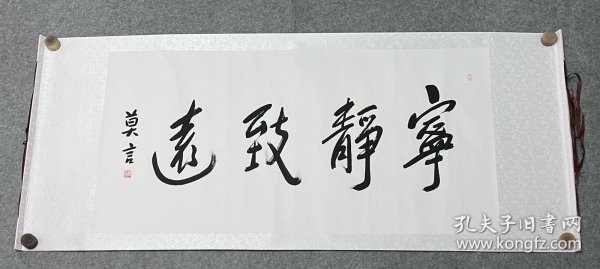 寧靜致遠
莫言
孔夫子旧书网
www.kongfz.com